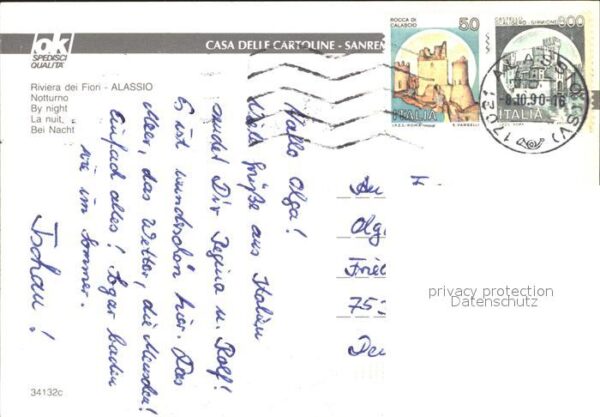 ok
SPEDISCI
QUALITÀ
CASA DELLE CARTOLINE - SANREM
Riviera dei Fiori - ALASSIO
Notturno
By night
La nuit
Bei Nacht
ROCCA DI
CALASCIO
50
ITALIA
I.P.Z.S. - ROMA
E. VANGELLI
SCALIGERO - SIRMIONE
ITALIA
17021 ALASSIO (SV)
-8.10.90-16
Hallo Olga!
Viele Grüße aus Italien
sendet Dir Regina u. Rolf!
Es ist wunderschön hier. Das
Meer, das Wetter, die Menschen!
Einfach alles! Sogar baden
wie im Sommer.
Tschau!
An
Olg
Frie
753
privacy protection
Datenschutz
34132c